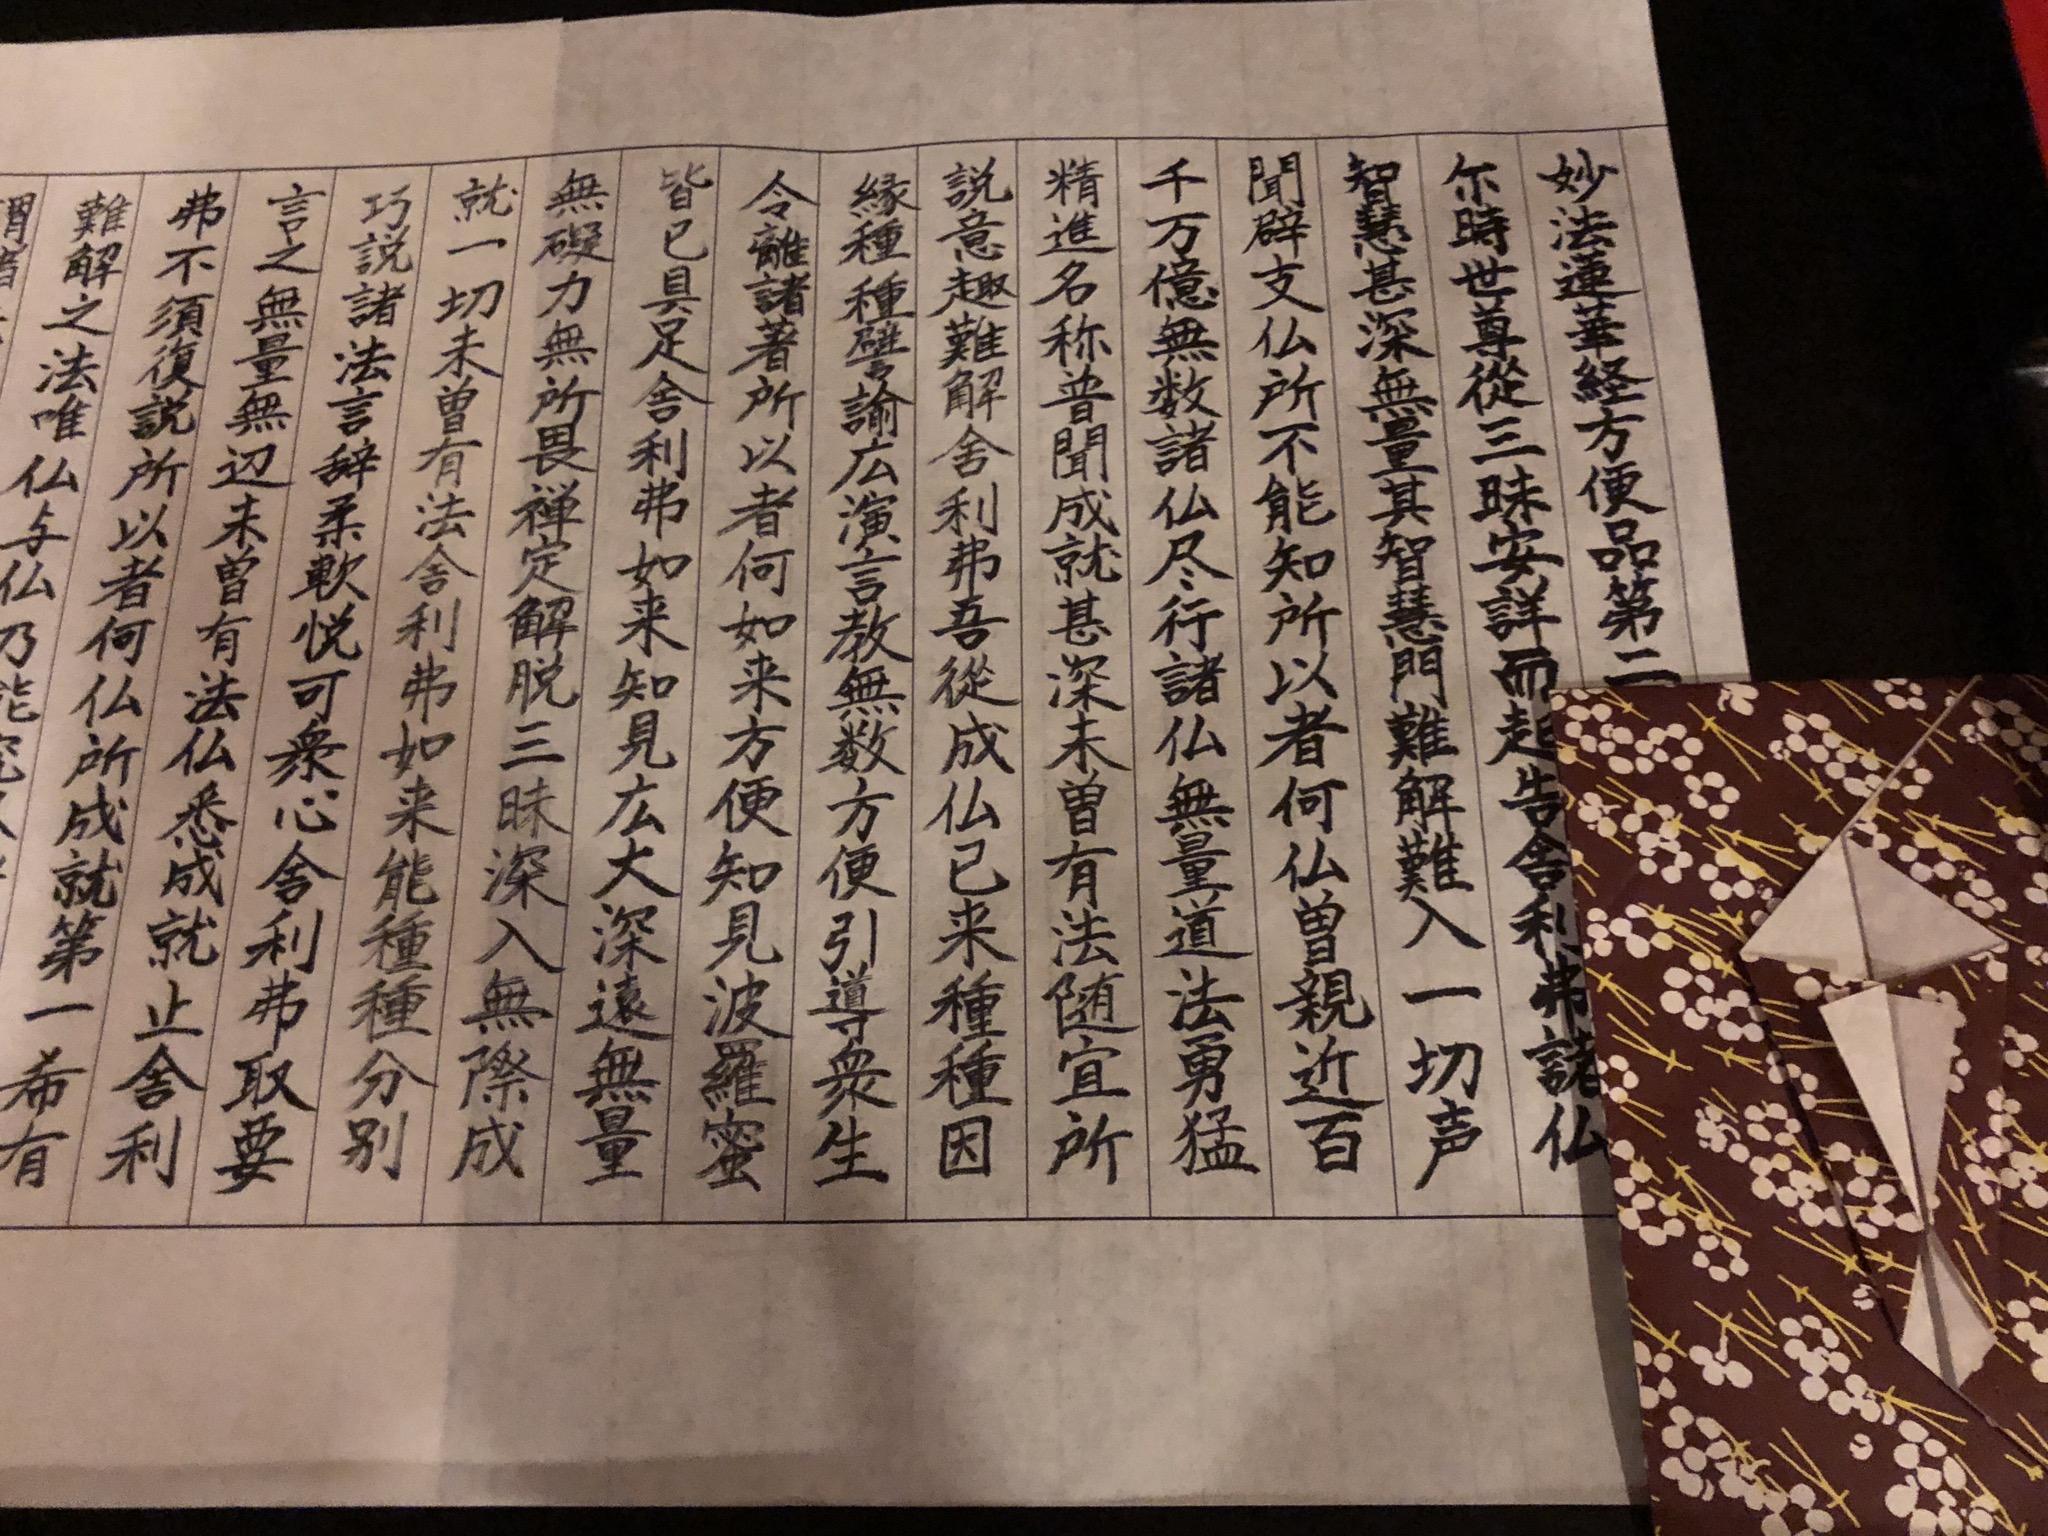 妙法蓮華経方便品第二
尓時世尊従三昧安詳而起告舎利弗諸仏
智慧甚深無量其智慧門難解難入一切声
聞辟支仏所不能知所以者何仏曽親近百
千万億無数諸仏尽行諸仏無量道法勇猛
精進名称普聞成就甚深未曽有法随宜所
説意趣難解舎利弗吾従成仏已来種種因
縁種種譬諭広演言教無数方便引導衆生
令離諸著所以者何如来方便知見波羅蜜
皆已具足舎利弗如来知見広大深遠無量
無礙力無所畏禅定解脱三昧深入無際成
就一切未曽有法舎利弗如来能種種分別
巧説諸法言辞柔軟悦可衆心舎利弗取要
言之無量無辺未曽有法仏悉成就止舎利
弗不須復説所以者何仏所成就第一希有
難解之法唯仏与仏乃能究